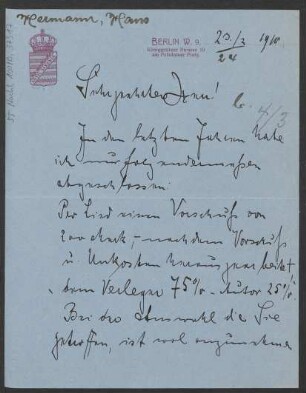 Hermann, Hans
BERLIN W. 9.
Königgrätzer Strasse
am Potsdamer Platz
23/2 1910.
Sehr geehrter Herr!
b. 4/3
In den letzten Jahren habe
ich nur folgendermaßen
abgeschlossen:
Per Lied einen Vorschuß von
Mark, – nach dem Vorschuß
u Unkosten herausgearbeitet
dem Verleger 75% Autor 25%
Bei der Auswahl die Sie
getroffen, ist wol anzunehmen